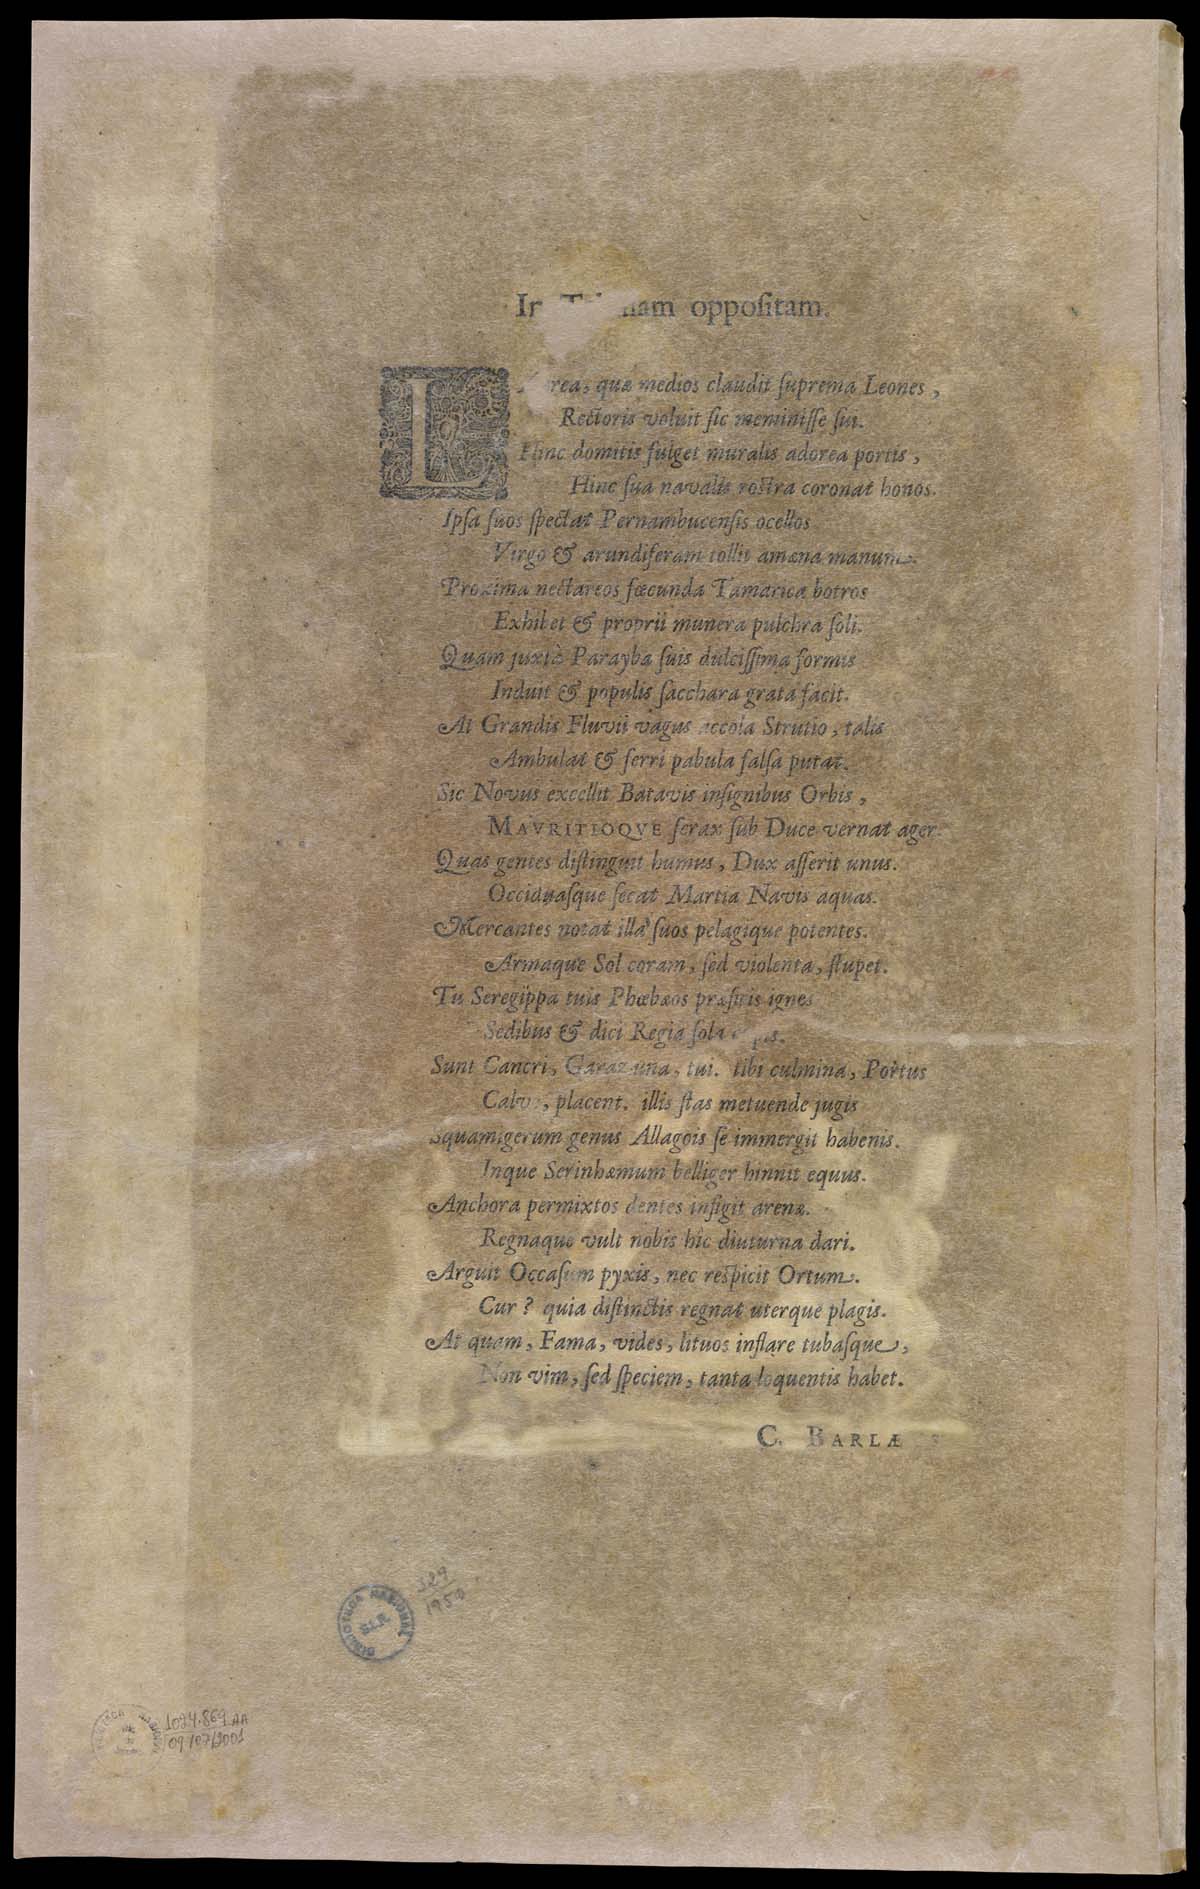 oppoſitam.
L rea, quæ medios claudit ſuprema Leones,
Rectoris voluit ſic meminiſſe ſui.
Hinc domitis fulget muralis adorea portis,
Hinc ſua navalis roſtra coronat honos.
Ipſa ſuos ſpectat Pernambucenſis ocellos
Virgo & arundiferam tollit amœna manum.
Proxima nectareos fœcunda Tamarica botros
Exhibet & proprii munera pulchra ſoli.
Quam juxtà Parayba ſuis dulciſſima formis
Induit & populis ſacchara grata facit.
At Grandis Fluvii vagus accola Strutio, talis
Ambulat & ferri pabula falſa putat.
Sic Novus excellit Batavis inſignibus Orbis,
MAVRITIOQVE ferax ſub Duce vernat ager.
Quas gentes diſtinguit humus, Dux aſſerit unus.
Occiduaſque ſecat Martia Navis aquas.
Mercantes notat illa ſuos pelagique potentes.
Armaque Sol coram, ſed violenta, ſtupet.
Tu Seregippa tuis Phœbæos præficis ignes
Sedibus & dici Regia ſola
Sunt Cancri, tui. tibi culmina, Portus
placent. illis ſtas metuende jugis
Squamigerum genus Allagois ſe immergit habenis.
Inque Serinhæmum belliger hinnit equus.
Anchora permixtos dentes inſigit arenæ.
Regnaque vult nobis hîc diuturna dari.
Arguit Occaſum pyxis, nec reſpicit Ortum.
Cur? quia diſtinctis regnat uterque plagis.
At quam, Fama, vides, lituos inflare tubaſque,
Non vim, ſed ſpeciem, tanta loquentis habet.
C. BARLÆ
329
1950
BIBLIOTECA NACIONAL
1024.869 AA
09/07/2001